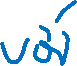 บมี